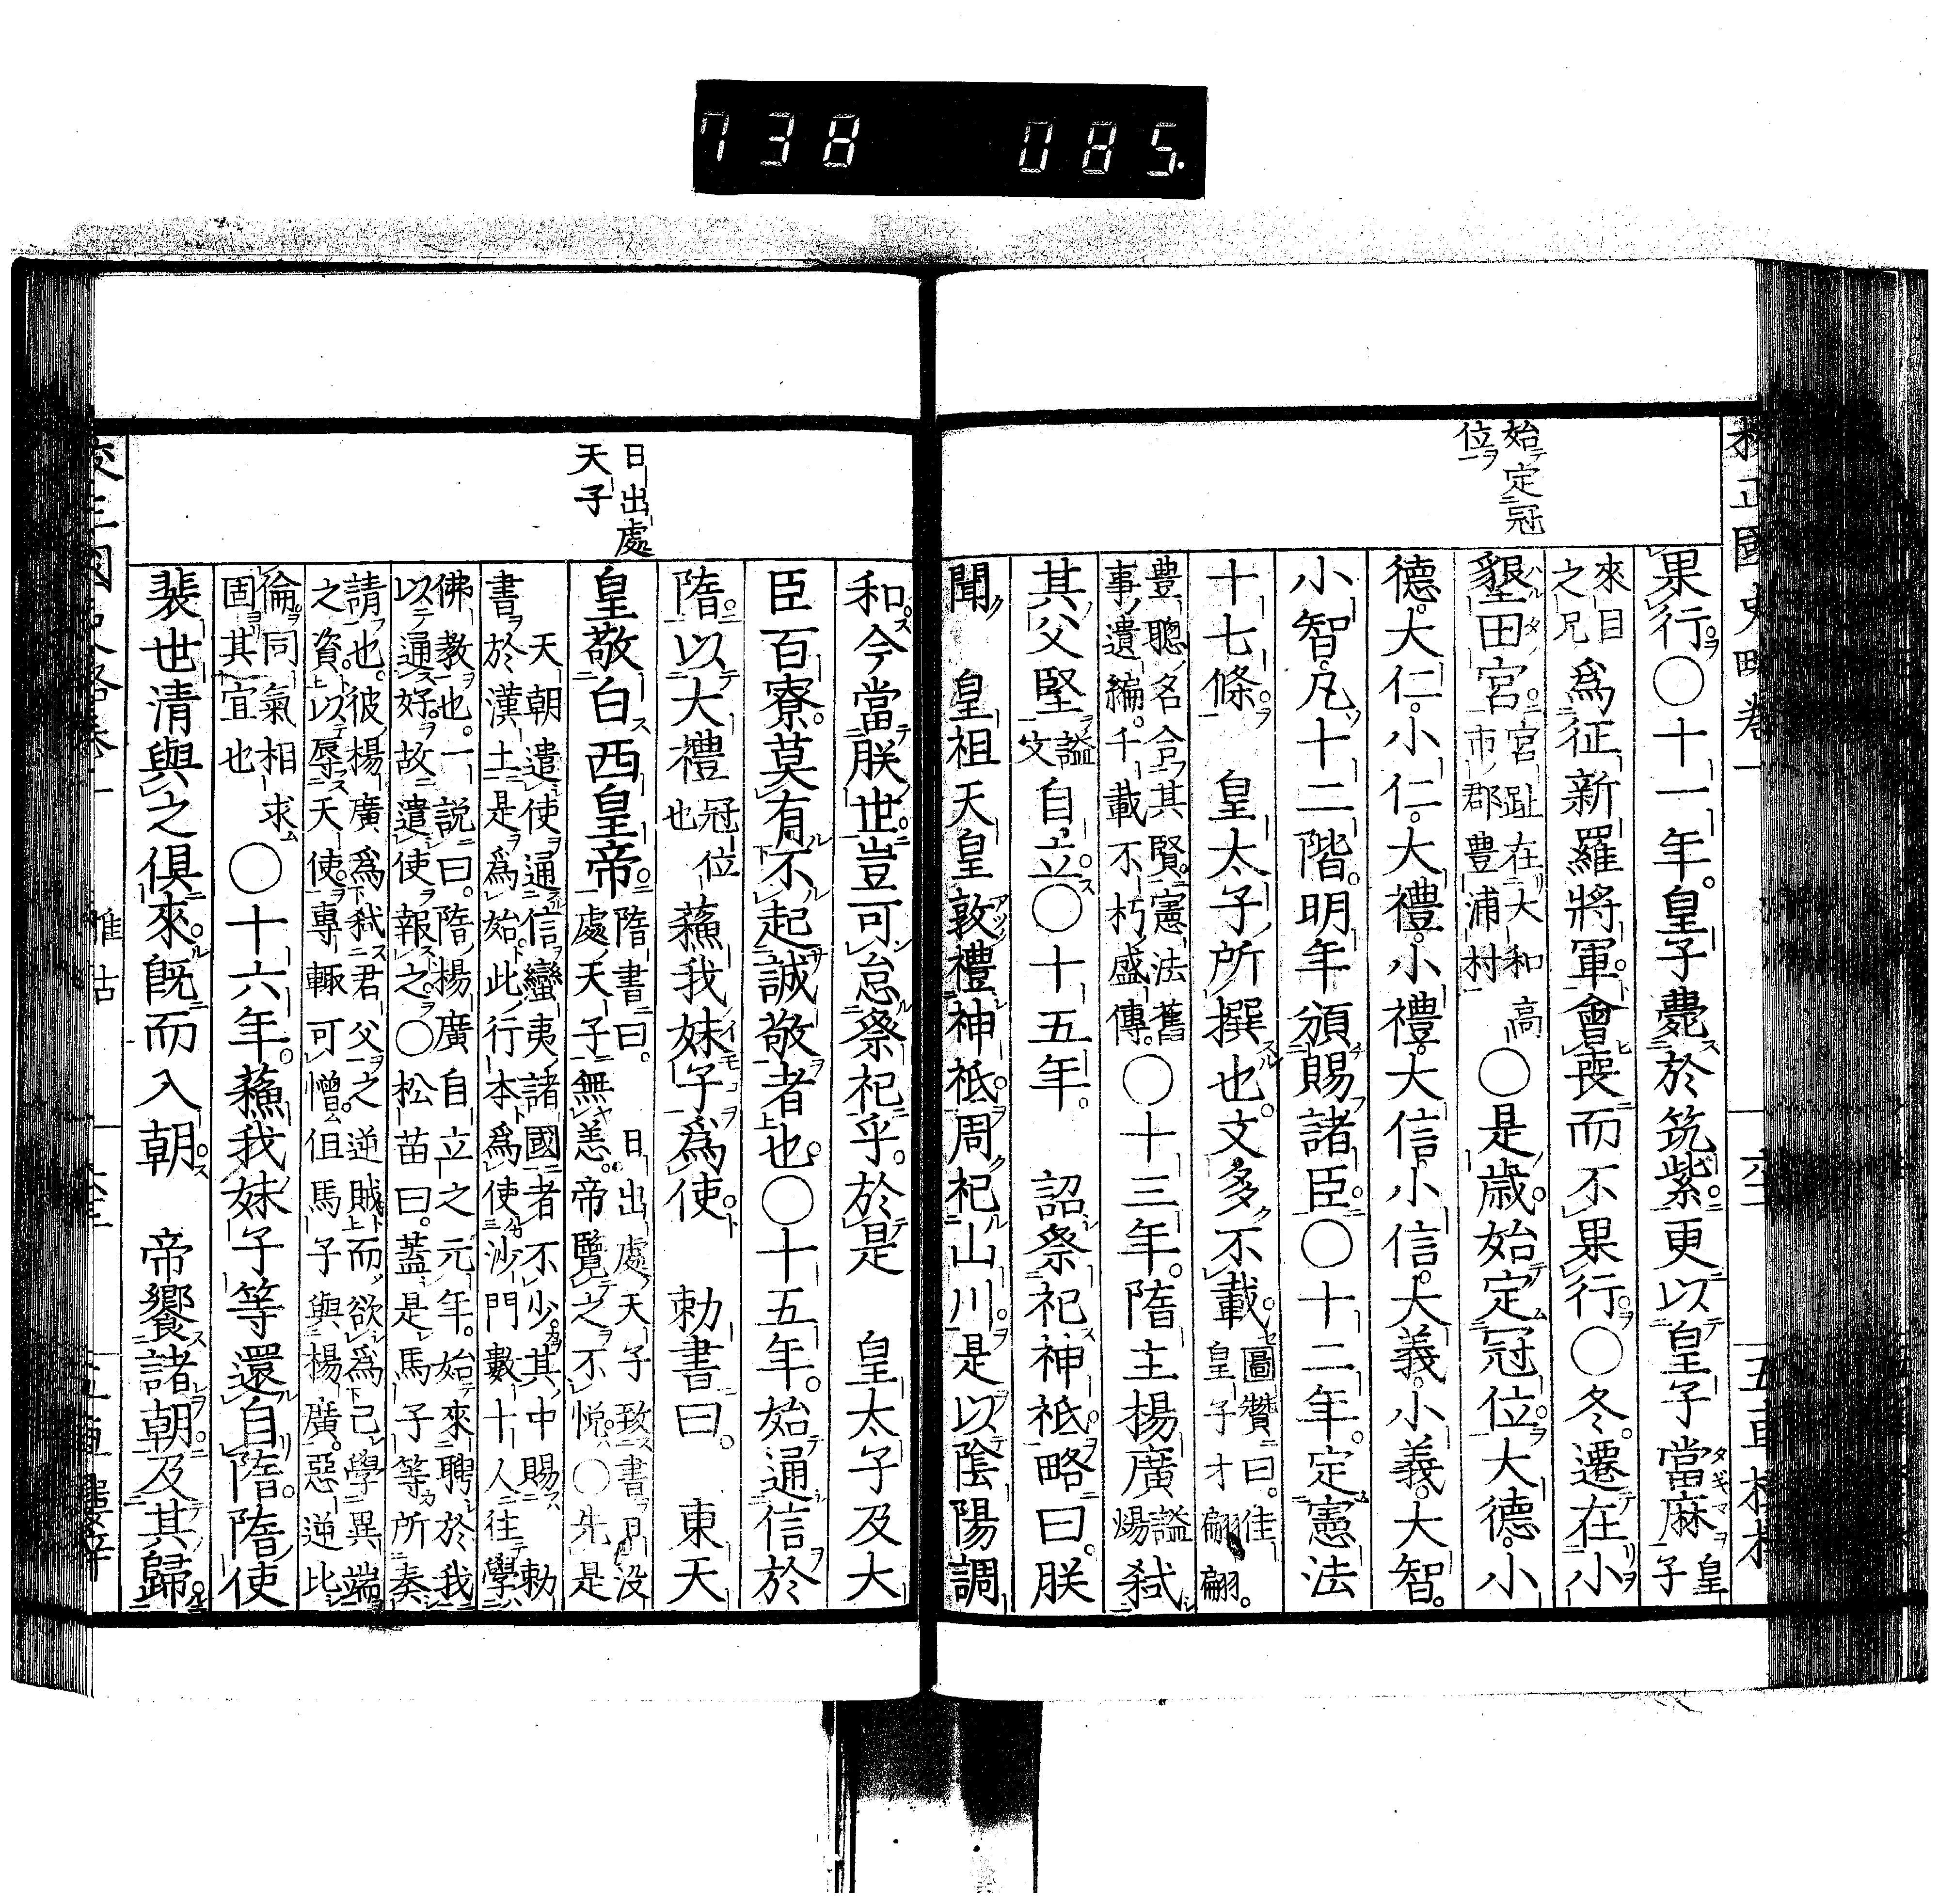 738 085.
始定冠
位
果行○十一年。皇子薨於筑紫更以皇子當麻皇子
來目之兄爲征新羅將軍。會喪而不果行。○冬。遷在小
墾田宮宮趾在大和高市郡豊浦村○是歳。始定冠位。大德。小
德。大仁。小仁。大禮。小禮。大信。小信。大義。小義。大智。
小智。凡十二階。明年頒賜諸臣。○十二年。定憲法
十七條。皇太子所撰也。文多不載。圖贊曰。佳皇子才翩翩。
豊聰名合其賢。憲法舊事遺編。千載不朽盛傳。○十三年。隋主楊廣謚煬弑
其父堅謚文自立。○十五年。詔祭祀神祗。略曰。朕
聞皇祖天皇敦禮神祗。周祀山川。是以陰陽調
日出處
天子
和。今當朕世豈可怠祭祀乎。於是皇太子及大
臣百寮。莫有不起誠敬者也。○十五年。始通信於
隋。以大禮冠位也蘇我妹子爲使。勅書曰。東天
皇敬白西皇帝。隋書曰。日出處天子致書日沒處天子無恙。帝覽之不悅。○先是
天朝遣使通信蠻夷諸國者不少。其中賜勅書於漢土是爲始。此行本爲使沙門數十人往學
佛教也。一說曰。隋楊廣自立之元年。始來聘於我以通好。故遣使報之。○松苗曰。蓋是馬子等所奏
請也。彼楊廣爲弑君父之逆賊而欲爲己學異端之資。以辱天使。專輙可憎。但馬子與楊廣。惡逆比
倫。同氣相求固其宜也○十六年。蘇我妹子等還自隋。隋使
裴世清與之俱來。旣而入朝。帝饗諸朝。及其歸。